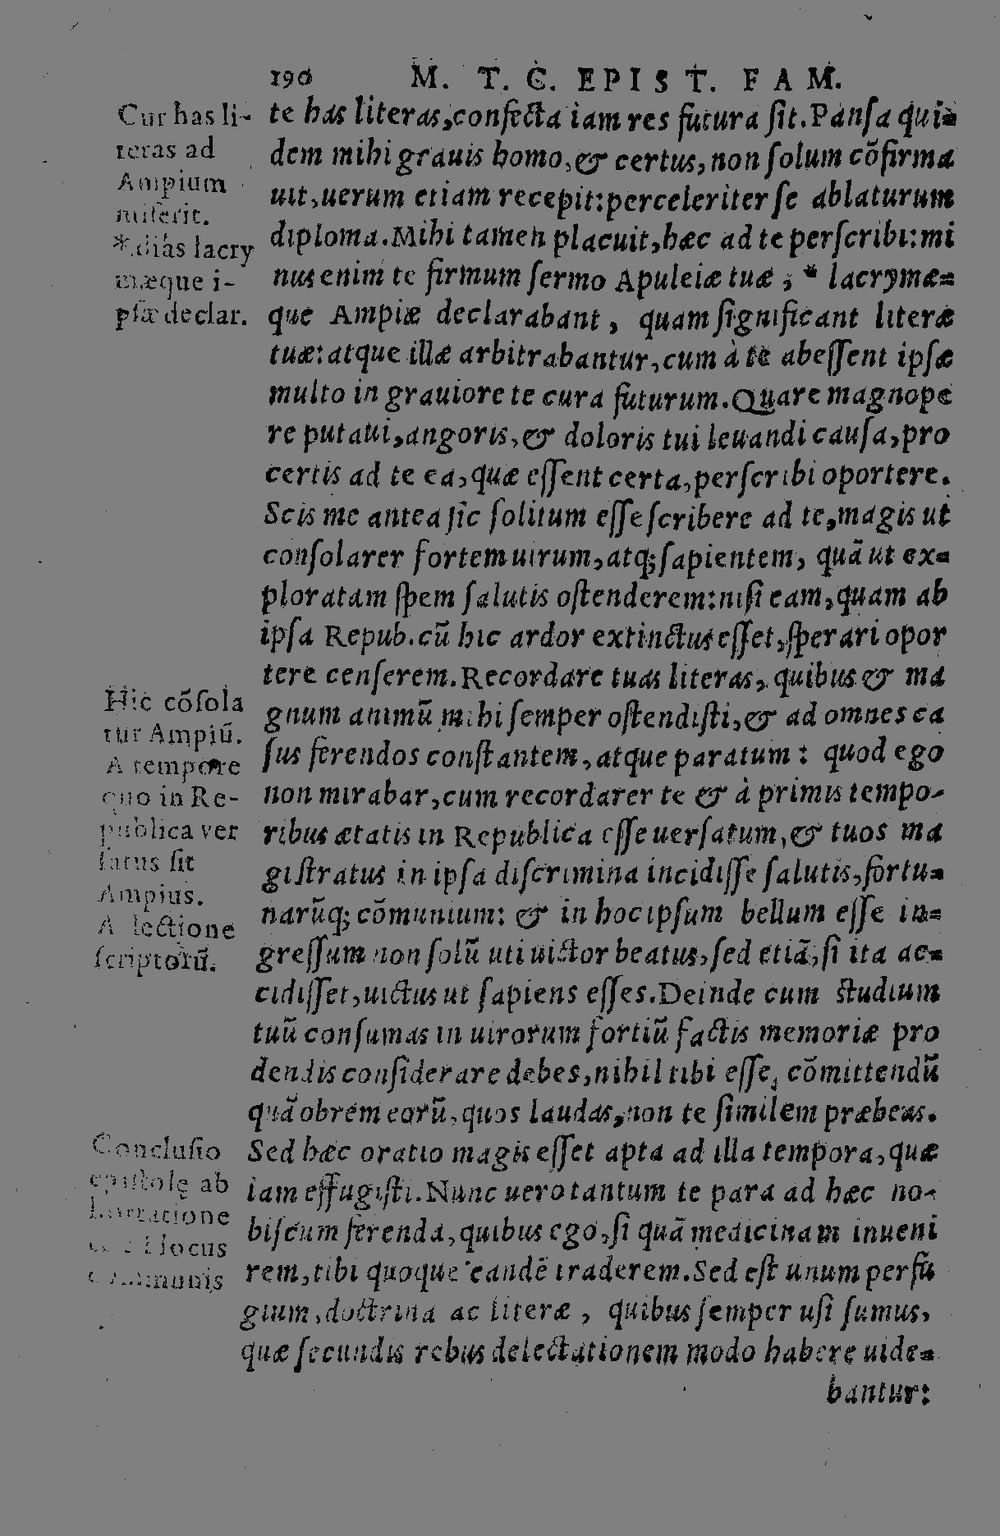 190 M. T. C. EPIST. FAM.
te has literas, confecta iam res futura sit. Pansa qui-
dem mihi grauis homo, & certus, non solum cõfirma
uit, uerum etiam recepit: perceleriter se ablaturum
diploma. Mihi tamen placuit, hæc ad te perscribi: mi
nus enim te firmum sermo Apuleiæ tuæ, * lacrymæ-
que Ampiæ declarabant, quam significant literæ
tuæ: atque illæ arbitrabantur, cum à te abessent ipsæ
multo in grauiore te cura futurum. Quare magnope
re putaui, angoris, & doloris tui leuandi causa, pro
certis ad te ea, quæ essent certa, perscribi oportere.
Scis me antea sic solitum esse scribere ad te, magis ut
consolarer fortem uirum, atq; sapientem, quã ut ex-
ploratam spem salutis ostenderem: nisi eam, quam ab
ipsa Repub. cũ hic ardor extinctus esset, sperari opor
tere censerem. Recordare tuas literas, quibus & ma
gnum animũ mihi semper ostendisti, & ad omnes ca
sus ferendos constantem, atque paratum: quod ego
non mirabar, cum recordarer te & à primis tempo-
ribus ætatis in Republica esse uersatum, & tuos ma
gistratus in ipsa discrimina incidisse salutis, fortu-
narũq; cõmunium: & in hoc ipsum bellum esse in-
gressum non solũ uti uictor beatus, sed etiã, si ita ac-
cidisset, uictus ut sapiens esses. Deinde cum studium
tuũ consumas in uirorum fortiũ factis memoriæ pro
dendis considerare debes, nihil tibi esse, cõmittendũ
quãobrem eorũ, quos laudas, non te similem præbeas.
Sed hæc oratio magis esset apta ad illa tempora, quæ
iam effugisti. Nunc uero tantum te para ad hæc no-
biscum ferenda, quibus ego, si quã medicinam inueni
rem, tibi quoque eandẽ traderem. Sed est unum perfũ
gium, doctrina ac literæ, quibus semper usi sumus,
quæ secundis rebus delectationem modo habere uide-
bantur:
Cur has li-
teras ad
Ampium
miserit.
*diás lacry
mæque i-
psæ declar.
Hic cõsola
tur Ampiũ.
A tempore
quo in Re-
publica ver
satus sit
Ampius.
A lectione
scriptorũ.
Conclusio
epistolę ab
narratione
locus
communis